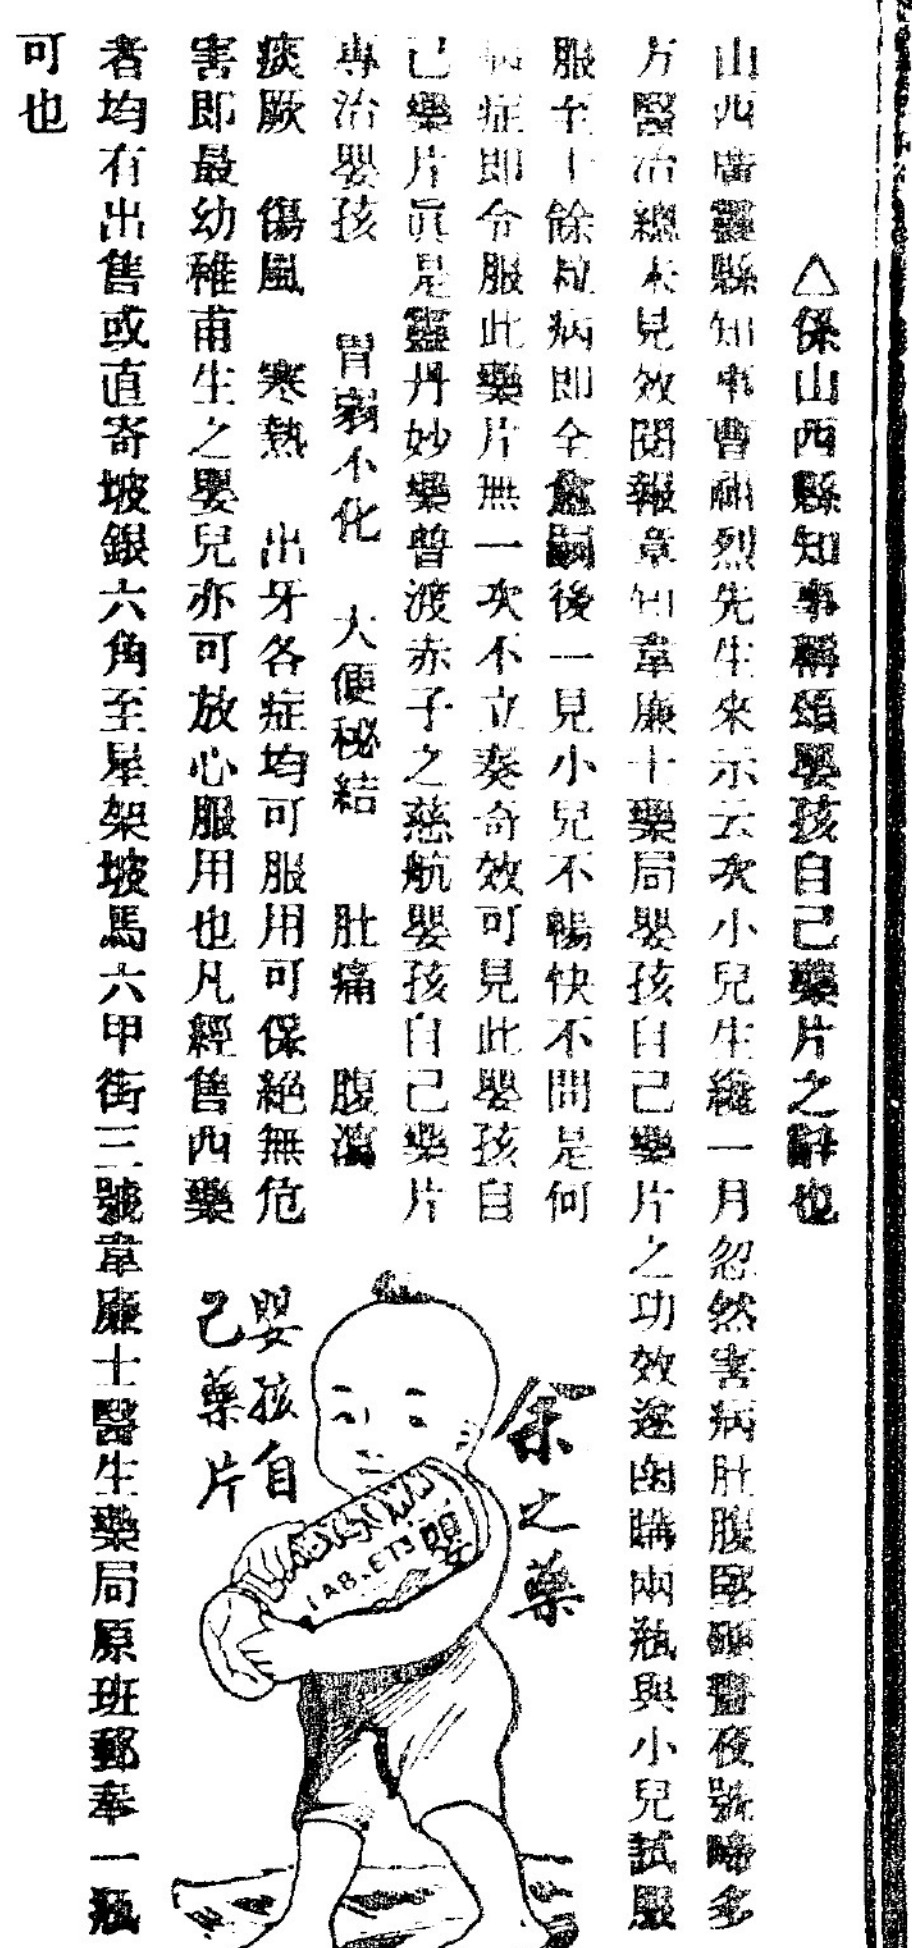 △係山西縣知事稱頌嬰孩自己藥片之辭也
山西廣靈縣知事曹 烈先生來示云次小兒生纔一月忽然害病肚腹 硬晝夜號啼多
方醫治總未見效閱報章知韋廉士藥局嬰孩自己藥片之功效遂函購兩瓶與小兒試服
服至十餘粒病即全愈嗣後一見小兒不暢快不問是何
病症即令服此藥片無一次不立奏奇效可見此嬰孩自
己藥片真是靈丹妙藥普渡赤子之慈航嬰孩自己藥片
專治嬰孩 胃弱不化 大便秘結 肚痛 腹瀉
痰厥 傷風 寒熱 出牙各症均可服用可保絕無危
害即最幼稚甫生之嬰兒亦可放心服用也凡經售西藥
者均有出售或直寄坡銀六角至星架坡馬六甲街三號韋廉士醫生藥局原班郵奉一瓶
可也
余之藥
BABY'S OWN
TABLETS
嬰孩自
己藥片